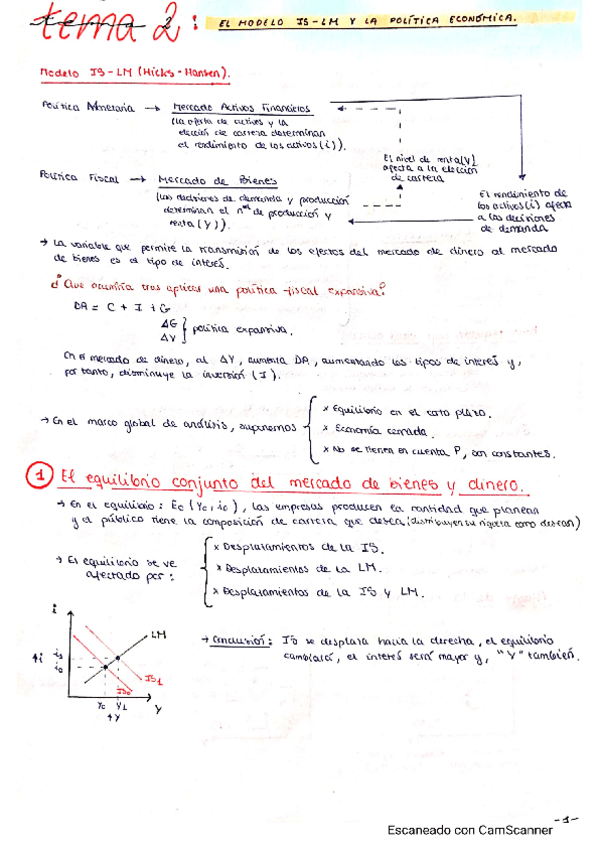 tema 2: EL MODELO IS-LM Y LA POLÍTICA ECONÓMICA.
Modelo IS-LM (Hicks-Hansen).
Política Monetaria → Mercado Activos Financieros
(la oferta de activos y la
elección de cartera determinan
el rendimiento de los activos (i)).
El nivel de renta (Y)
afecta a la elección
de cartera
Política Fiscal → Mercado de Bienes
(las decisiones de demanda y producción
determinan el nel de producción y
renta (Y)).
El rendimiento de
los activos (i) afecta
a las decisiones
de demanda
→ La variable que permite la transmisión de los efectos del mercado de dinero al mercado
de bienes es el tipo de interés.
¿Que ocurriría tras aplicar una política fiscal expansiva?
DA = C + I + G
ΔG
ΔY } política expansiva.
En el mercado de dinero, al ΔY, aumenta DA, aumentando los tipos de interés y,
por tanto, disminuye la inversión (I).
→ En el marco global de análisis, suponemos
x Equilibrio en el corto plazo.
x Economía cerrada.
x No se tienen en cuenta P, son constantes.
1 El equilibrio conjunto del mercado de bienes y dinero.
→ En el equilibrio: Ec (Yc, ic), las empresas producen la cantidad que planean
y el público tiene la composición de cartera que desea (distribuyen su riqueza como desean)
→ El equilibrio se ve
afectado por:
x Desplazamientos de la IS.
x Desplazamientos de la LM.
x Desplazamientos de la IS y LM.
i
LM
i1
i0
IS1
IS0
Yc Y1
Y
→ Conclusión: IS se desplaza hacia la derecha, el equilibrio
cambiará, el interés será mayor y, "Y" también.
-1-
Escaneado con CamScanner